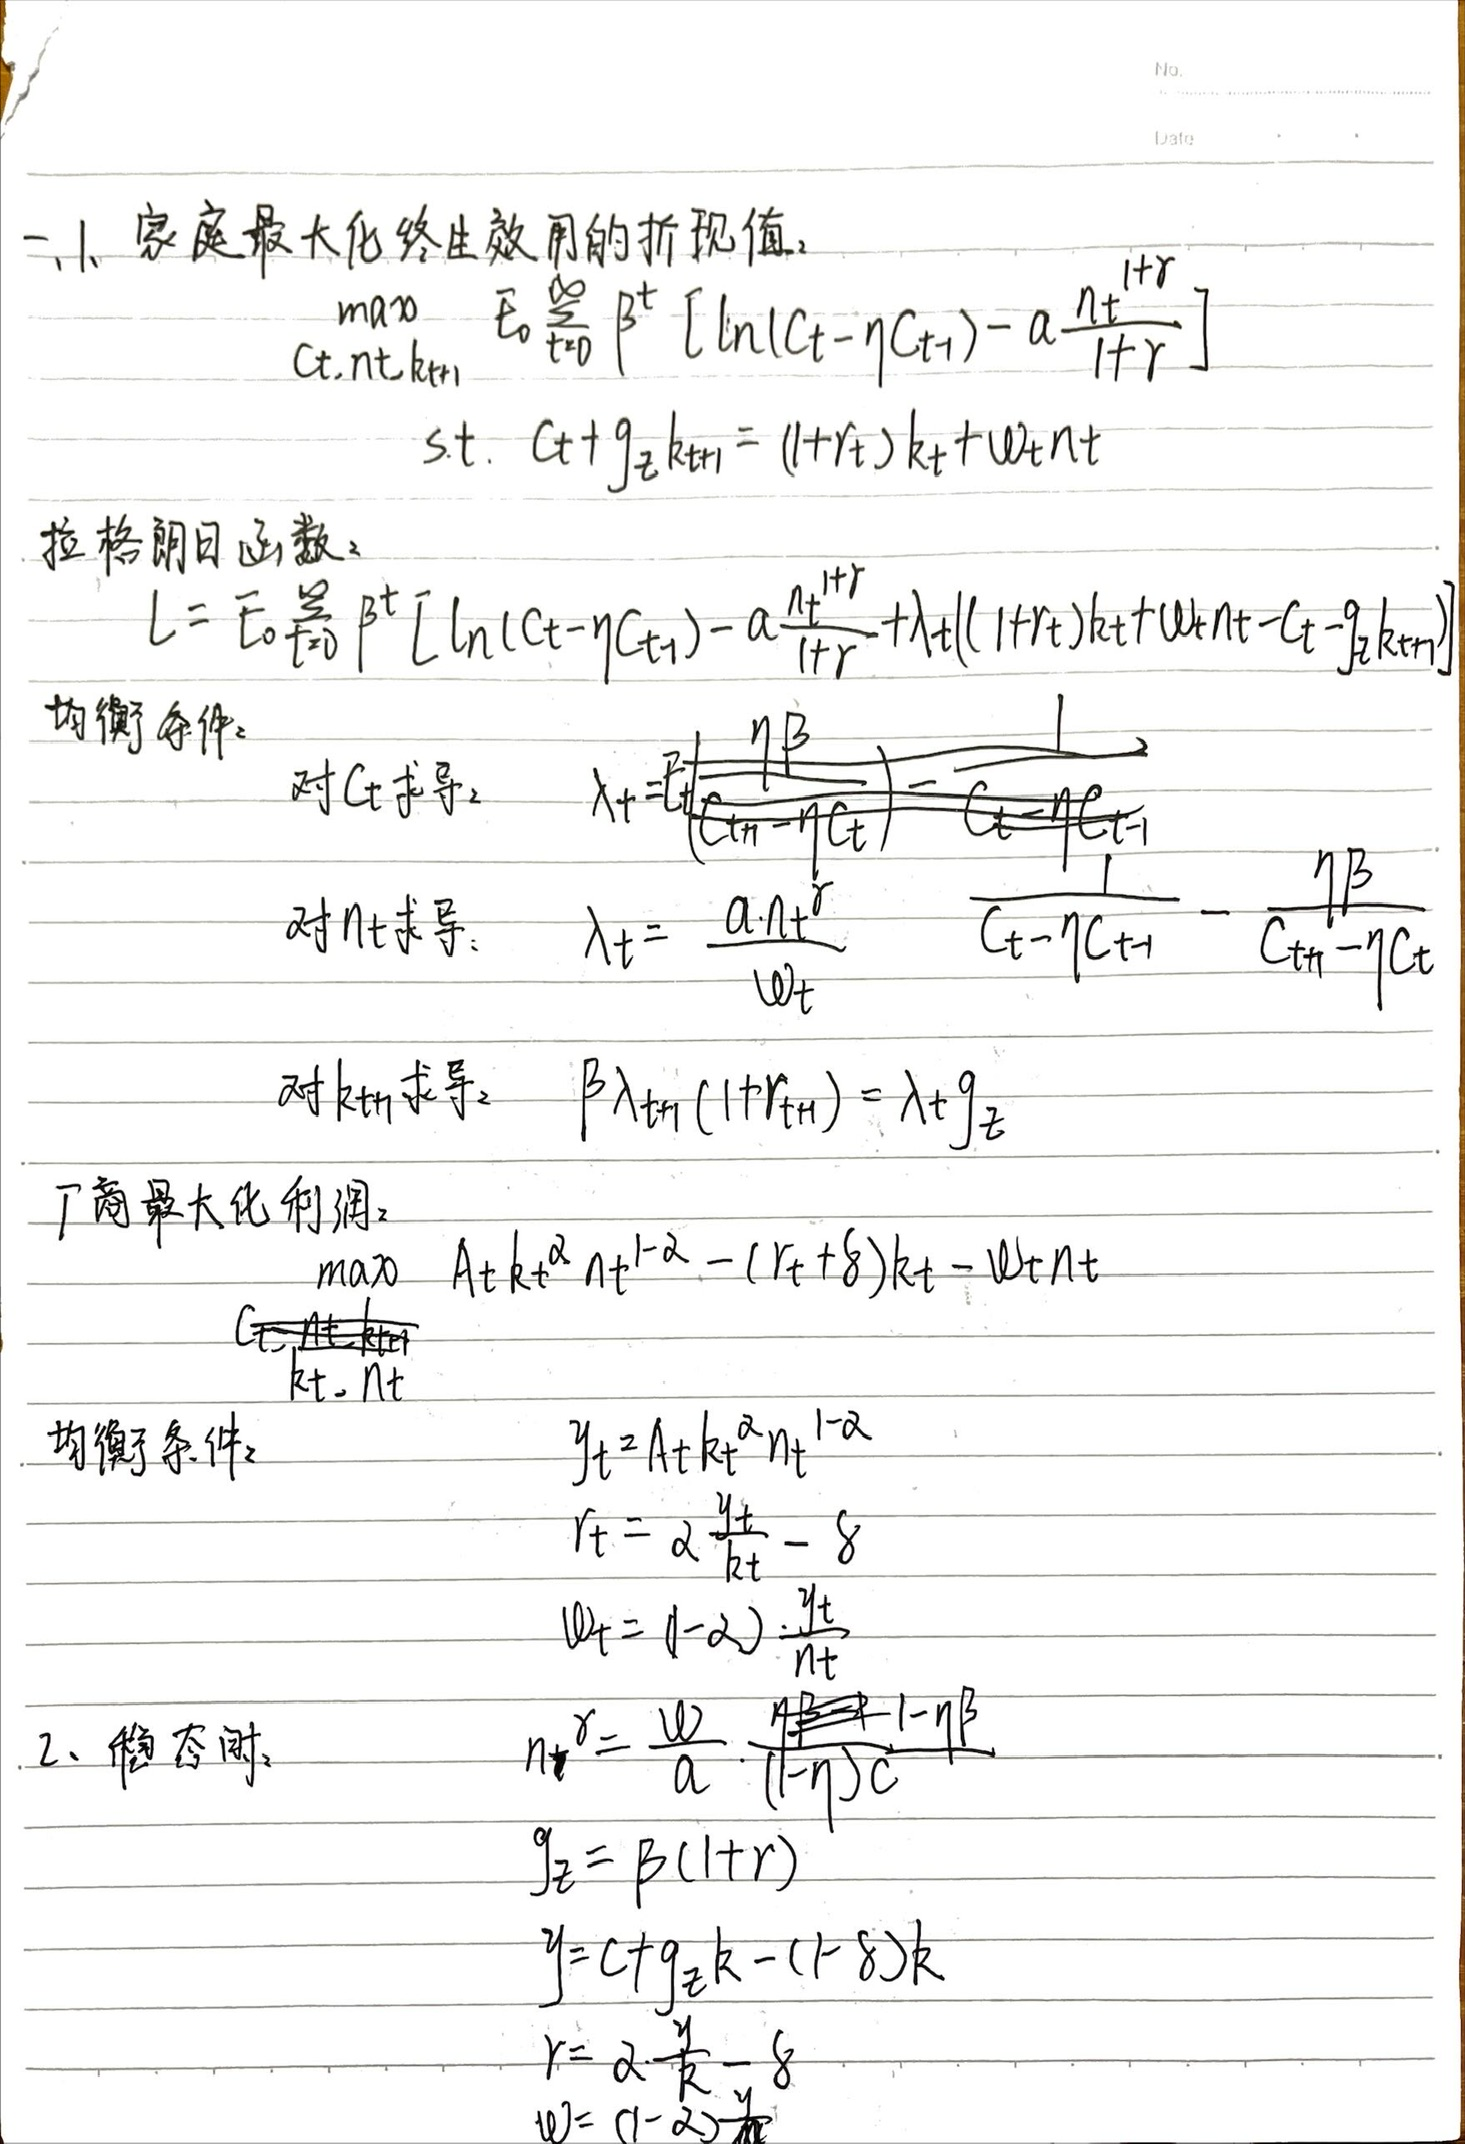 No.
Date
一、1、家庭最大化终生效用的折现值：
max E₀ ∑_{t=0}^{∞} β^t [ln(Ct-ηCt-1) - a nt^{1+γ}/(1+γ)]
Ct.nt.kt+1
s.t. Ct+g_z kt+1 = (1+rt)kt+wtnt
拉格朗日函数：
L = E₀ ∑_{t=0}^{∞} β^t [ln(Ct-ηCt-1) - a nt^{1+γ}/(1+γ) + λt((1+rt)kt+wtnt-Ct-g_z kt+1)]
均衡条件：
对Ct求导： λt = Et(ηβ/(Ct+1-ηCt)) - 1/(Ct-ηCt-1)
1/(Ct-ηCt-1) - ηβ/(Ct+1-ηCt)
对nt求导： λt = a·nt^γ/wt
对kt+1求导： βλt+1(1+rt+1) = λt g_z
厂商最大化利润：
max At kt^α nt^{1-α} - (rt+δ)kt - wtnt
Ct.nt.kt+1
kt.nt
均衡条件： yt = At kt^α nt^{1-α}
rt = α yt/kt - δ
wt = (1-α)·yt/nt
2、稳态时： n^γ = w/a · (1-ηβ)/((1-η)C)
g_z = β(1+r)
y = C+g_z k-(1-δ)k
r = α·y/k - δ
w = (1-α) y/n